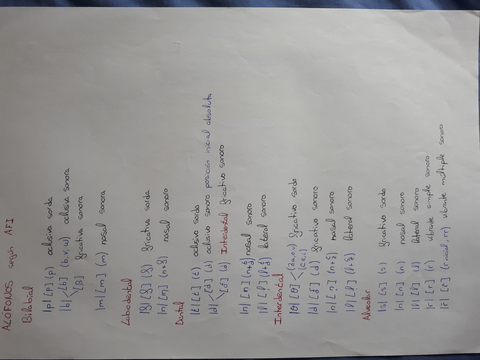 ALÓFONOS según AFI
Bilabial
|p| [p] (p) oclusiva sorda
|b| [b] (b,v,w) oclusiva sonora
[β] fricativa sonora
|m| [m] (m) nasal sonora
Labiodental
|f| [f] (f) fricativa sorda
nasal sonoro
Dental
|t| [t] (t) oclusivo sordo
|d| [d] (d) oclusivo sonoro posición inicial absoluta
(d) Interdental fricativo sonoro
nasal sonoro
lateral sonoro
Interdental
|θ| [θ] fricativo sordo
(d) fricativo sonoro
nasal sonoro
lateral sonoro
Alveolar
|s| [s] (s) fricativo sordo
|n| [n] (n) nasal sonoro
|l| [l] (l) lateral sonoro
|ɾ| [ɾ] (r) vibrante simple sonoro
|r| [r] vibrante múltiple sonoro